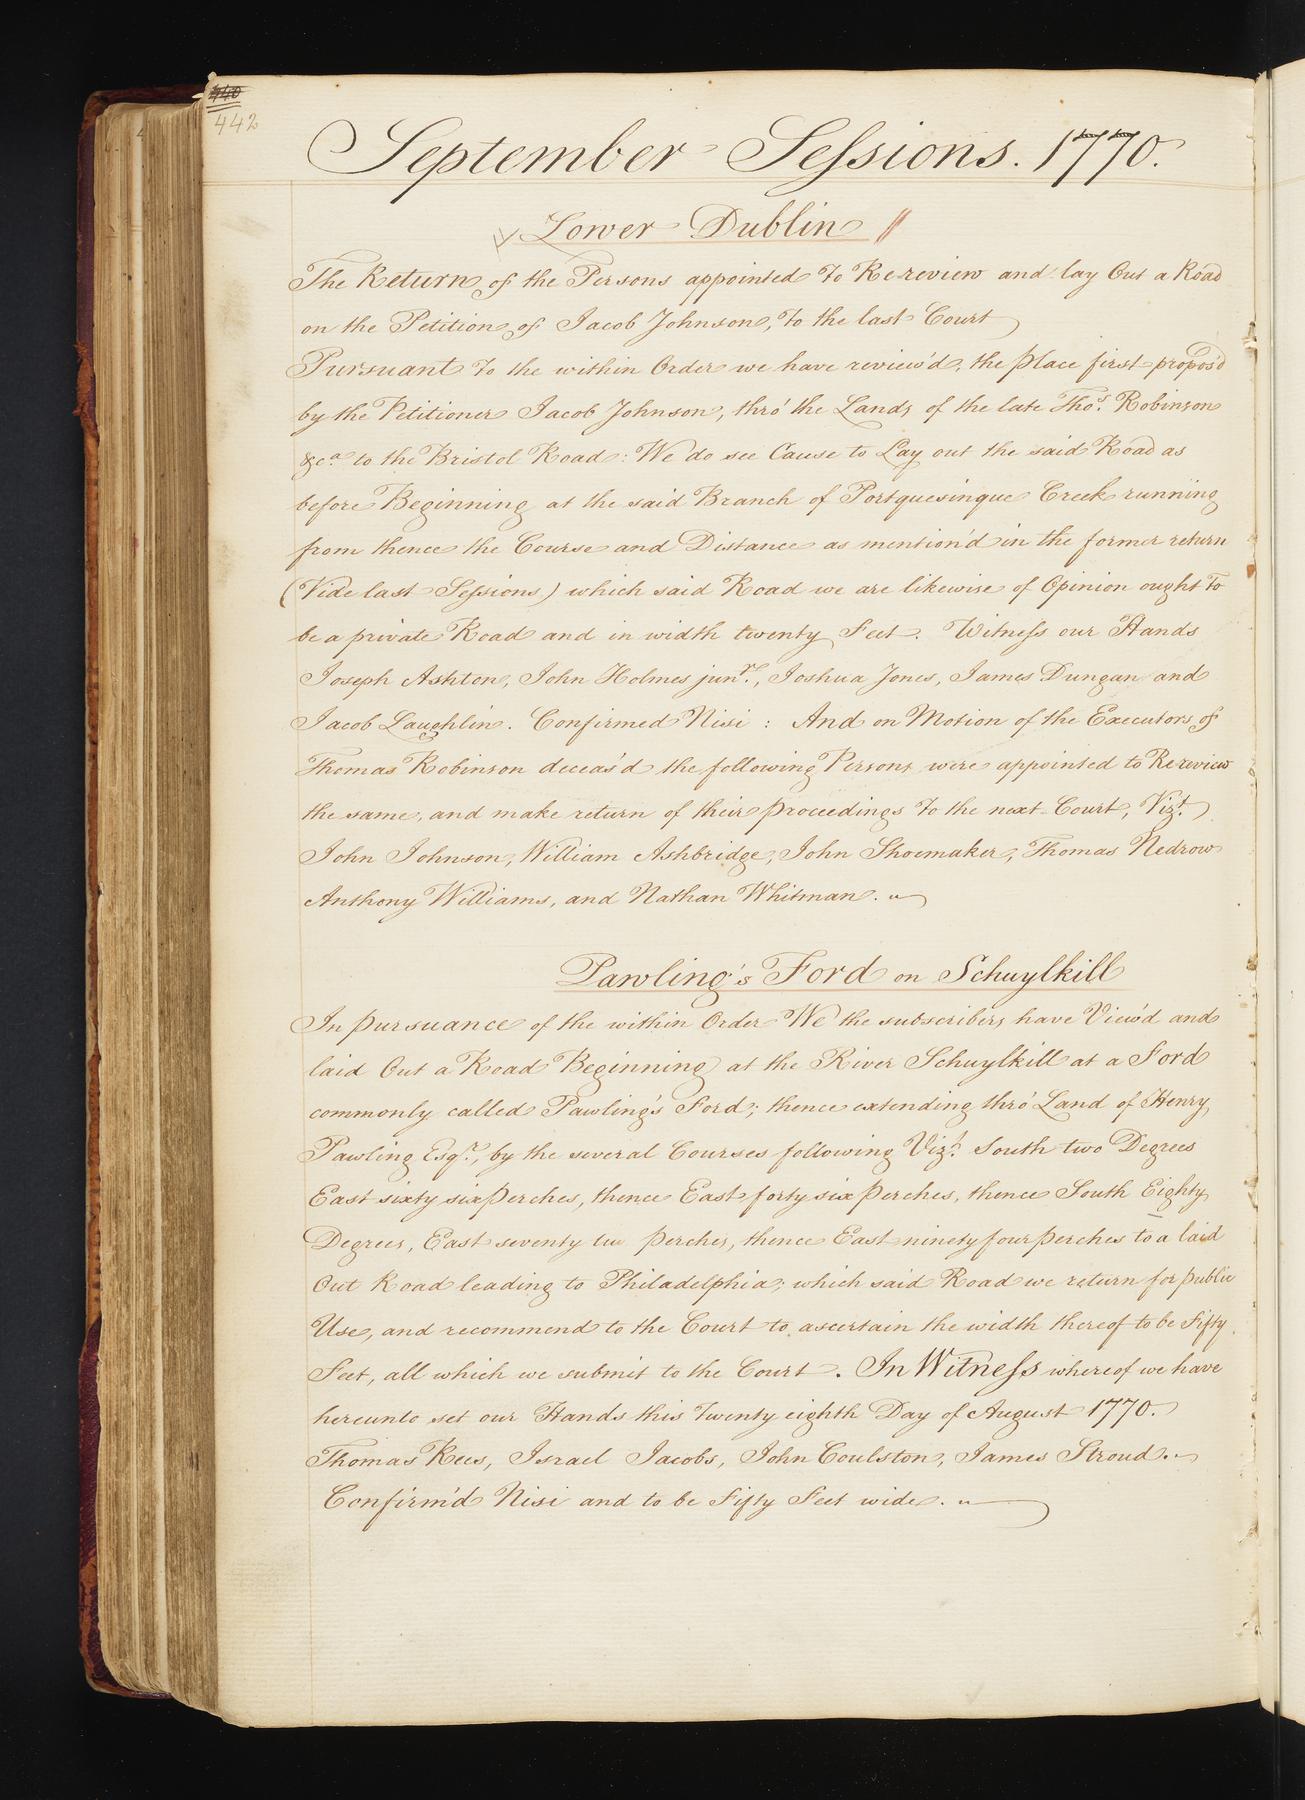 440
442
September Sessions. 1770.
Lower Dublin
The Return of the Persons appointed to Re-review and lay Out a Road
on the Petition of Jacob Johnson, to the last Court
Pursuant to the within Order we have review'd, the place first propos'd
by the Petitioner Jacob Johnson, thro' the Lands of the late Thos. Robinson
&ca. to the Bristol Road: We do see Cause to Lay out the said Road as
before Beginning at the said Branch of Portquesinque Creek running
from thence the Course and Distance as mention'd in the former return
(Vide last Sessions) which said Road we are likewise of Opinion ought to
be a private Road and in width twenty Feet. Witness our Hands
Joseph Ashton, John Holmes junr., Joshua Jones, James Dungan and
Jacob Laughlin. Confirmed Nisi: And on Motion of the Executors of
Thomas Robinson deceas'd the following Persons were appointed to Re-review
the same, and make return of their proceedings to the next Court, Vizt.
John Johnson, William Ashbridge, John Shoemaker, Thomas Nedrow
Anthony Williams, and Nathan Whitman.
Pawling's Ford on Schuylkill
In pursuance of the within Order We the subscribers have View'd and
laid Out a Road Beginning at the River Schuylkill at a Ford
commonly called Pawling's Ford; thence extending thro' Land of Henry
Pawling Esqr., by the several Courses following Vizt. South two Degrees
East sixty six Perches, thence East forty six perches, thence South Eighty
Degrees, East seventy two perches, thence East ninety four perches to a laid
Out Road leading to Philadelphia; which said Road we return for public
Use, and recommend to the Court to ascertain the width thereof to be Fifty
Feet, all which we submit to the Court. In Witness whereof we have
hereunto set our Hands this Twenty eighth Day of August 1770.
Thomas Rees, Israel Jacobs, John Coulston, James Stroud.
Confirm'd Nisi and to be Fifty Feet wide.